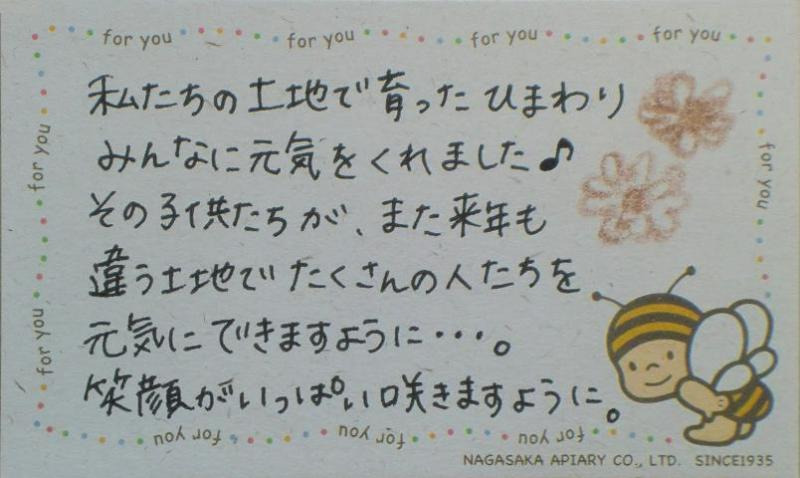 for you for you for you for you
私たちの土地で育ったひまわり
みんなに元気をくれました♪
その子供たちが、また来年も
違う土地でたくさんの人たちを
元気にできますように・・・。
笑顔がいっぱい咲きますように。
for you
for you
for you
for you for you for you
NAGASAKA APIARY CO., LTD. SINCE1935